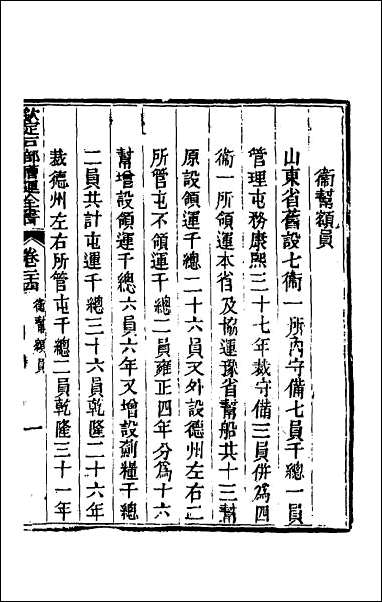 衞幫額員
山東省舊設七衞一所內守備七員千總一員
管理屯務康熙三十七年裁守備三員併爲四
衞一所領運本省及協運豫省幫船共十三幫
原設領運千總二十六員又外設德州左右二
所管屯不領運千總二員雍正四年分爲十六
幫增設領運千總六員六年又增設劍糧千總
二員共計屯運千總三十六員乾隆二十六年
裁德州左右所管屯千總二員乾隆三十一年
欽定戶部漕運全書
卷二十四
衞幫額員
一